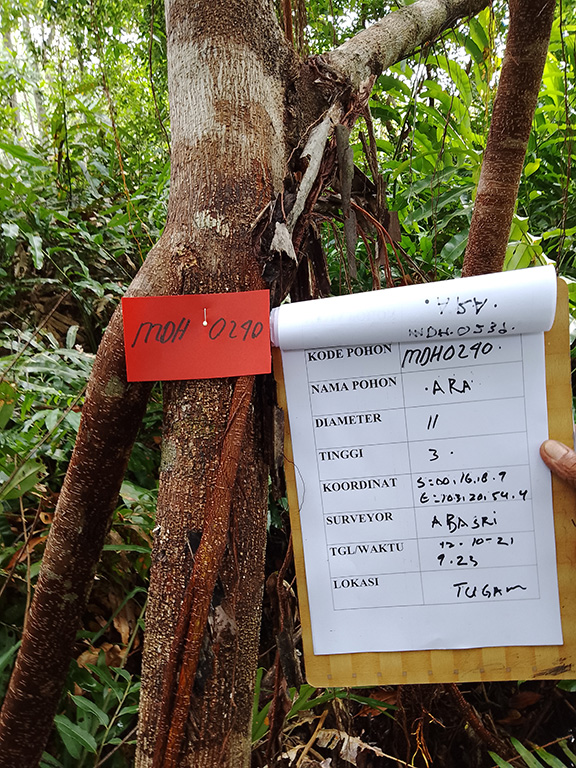 MDH 0240
MDH.0536.
KODE POHON MDH0240.
NAMA POHON . ARA
DIAMETER 11
TINGGI 3 .
KOORDINAT S=00.16.18.9
E=103.20.54.4
SURVEYOR
TGL/WAKTU 12.10-21
9.23
LOKASI TUGAM